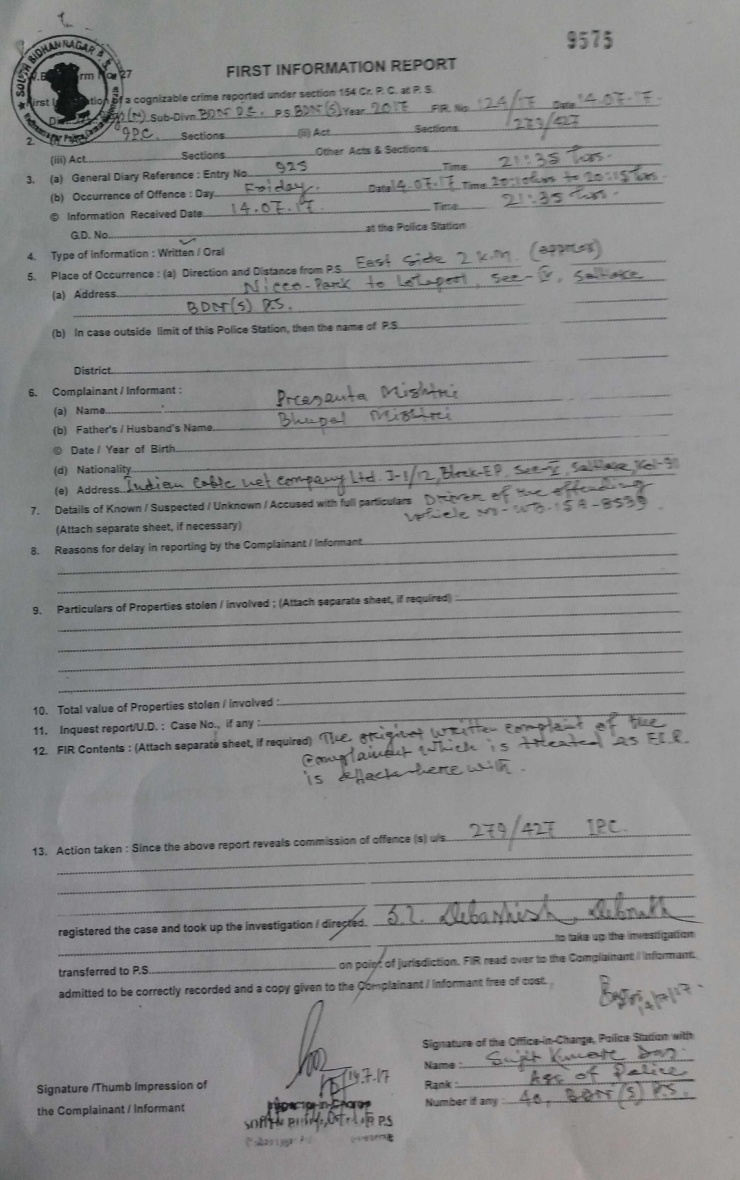 9575
SOUTH BIDHANNAGAR
FIRST INFORMATION REPORT
Form No. 27
First Information of a cognizable crime reported under section 154 Cr. P. C. at P. S.
Sub-Divn. P.S. BDN(S) Year 2017 FIR. No. 124/17 Date 14.07.17.
2. IPC. Sections (ii) Act Sections 279/427
(iii) Act Sections Other Acts & Sections
3. (a) General Diary Reference : Entry No. 925 Time 21:35 hrs.
(b) Occurrence of Offence : Day Friday. Date 14.07.17 Time 20:10 hrs to 20:15 hrs.
© Information Received Date 14.07.17. Time 21:35 hrs.
G.D. No. at the Police Station
4. Type of Information : Written / Oral
5. Place of Occurrence : (a) Direction and Distance from P.S. East Side 2 K.M. (approx)
(a) Address Nicco-Park to Sec-IV, Saltlake
BDN(S) P.S.
(b) In case outside limit of this Police Station, then the name of P.S.
District
6. Complainant / Informant :
(a) Name Prasanta Mishtri
(b) Father's / Husband's Name Bhupal Mishtri
© Date / Year of Birth
(d) Nationality
(e) Address Indian Cable net company Ltd. J-1/12, Block-EP, Sec-V, Saltlake, Kol-91
7. Details of Known / Suspected / Unknown / Accused with full particulars Driver of the offending
(Attach separate sheet, if necessary) vehicle no-WB-15A-8539.
8. Reasons for delay in reporting by the Complainant / Informant
9. Particulars of Properties stolen / involved : (Attach separate sheet, if required)
10. Total value of Properties stolen / involved :
11. Inquest report/U.D. : Case No., if any :
12. FIR Contents : (Attach separate sheet, if required) The original written complaint of the
complainant which is treated as F.I.R
is attach here with.
13. Action taken : Since the above report reveals commission of offence (s) u/s. 279/427 IPC.
registered the case and took up the investigation / directed. S.I. Debashish Debnath
to take up the investigation
transferred to P.S. on point of jurisdiction. FIR read over to the Complainant / Informant.
admitted to be correctly recorded and a copy given to the Complainant / Informant free of cost.
14/7/17.
Signature of the Office-in-Charge, Police Station with
Name : Sujit Kumar Das.
14.7.17
Signature /Thumb Impression of
Rank : ASI of Police
the Complainant / Informant
Inspector-in-Charge
Number if any : 40, BDN(S) P.S.
P.S